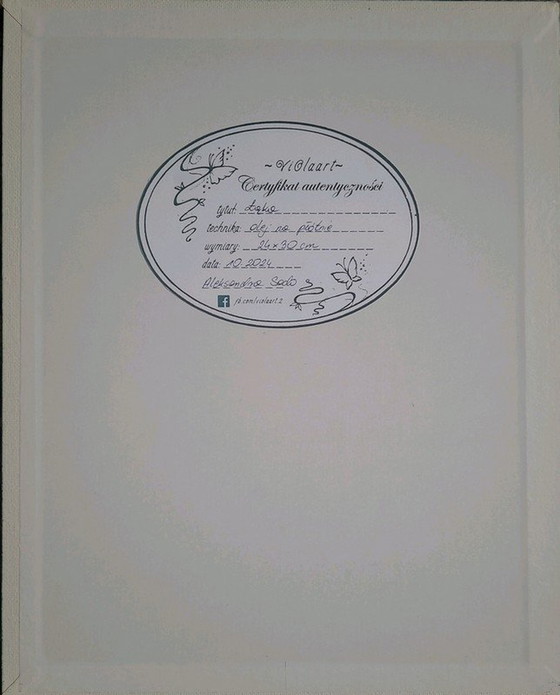 ~ViOlaart~
Certyfikat autentyczności
tytuł: Łąka
technika: olej na płótnie
wymiary: 24 x 30 cm
data: 10.2024
Aleksandra
fb.com/violaart.2